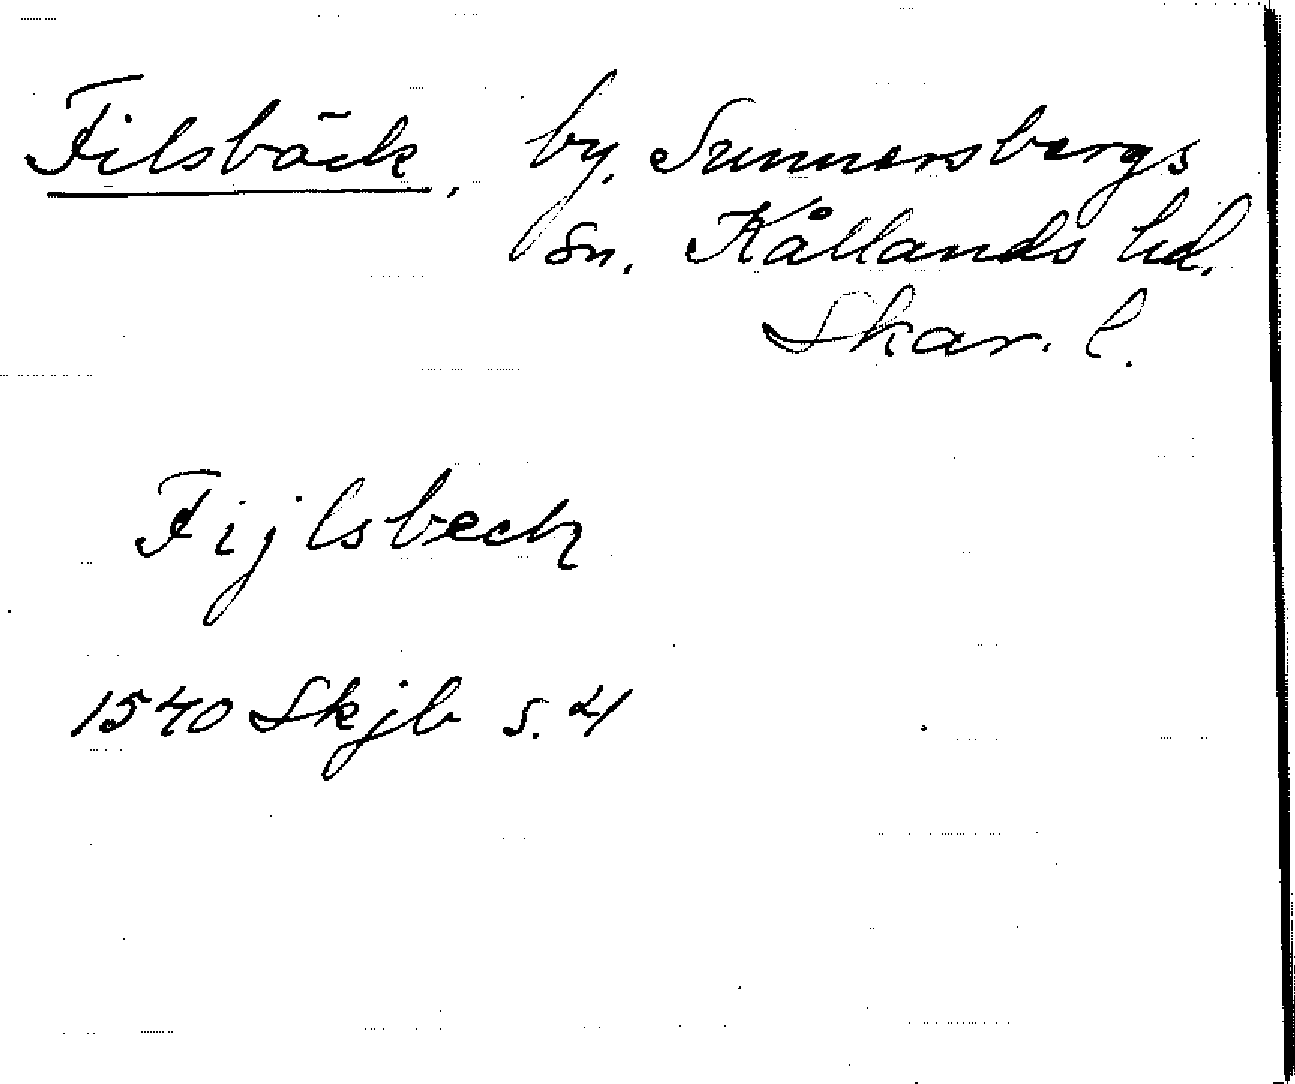 Filsbäck, by, Sunnersbergs
sn. Kållands hd.
Skar. l.
Fijlsbeck
1540 Skjb s. 21